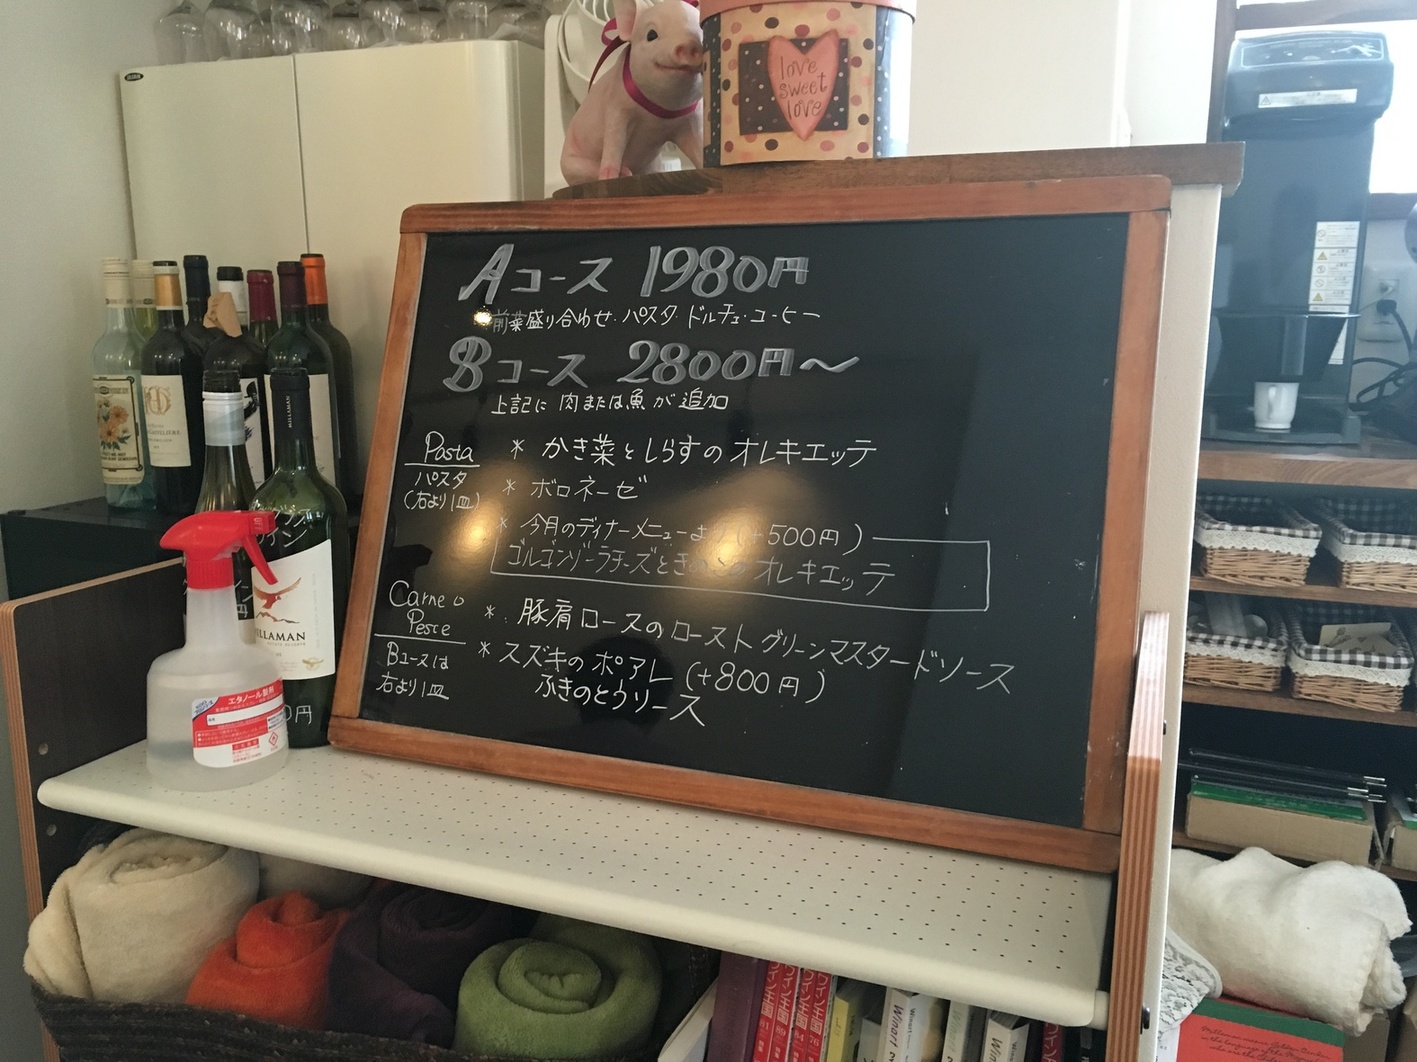 love
sweet
love
Aコース 1980円
前菜盛り合わせ・パスタ・ドルチェ・コーヒー
Bコース 2800円〜
上記に 肉または魚が追加
Pasta
パスタ
(右より1皿)
* かき菜としらすのオレキエッテ
* ボロネーゼ
* 今月のディナーメニューより(+500円)
ゴルゴンゾーラチーズときのこのオレキエッテ
Carne o
Pesce
Bコースは
右より1皿
* 豚肩ロースのロースト グリーンマスタードソース
* スズキのポアレ (+800円)
ふきのとうソース
MILLAMAN
エタノール製剤